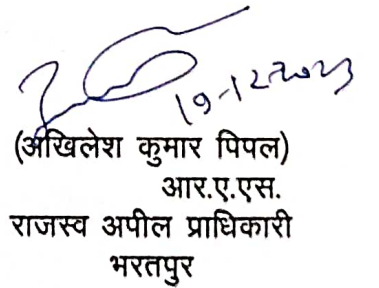 19-12-2023
(अखिलेश कुमार पिपल)
आर.ए.एस.
राजस्व अपील प्राधिकारी
भरतपुर